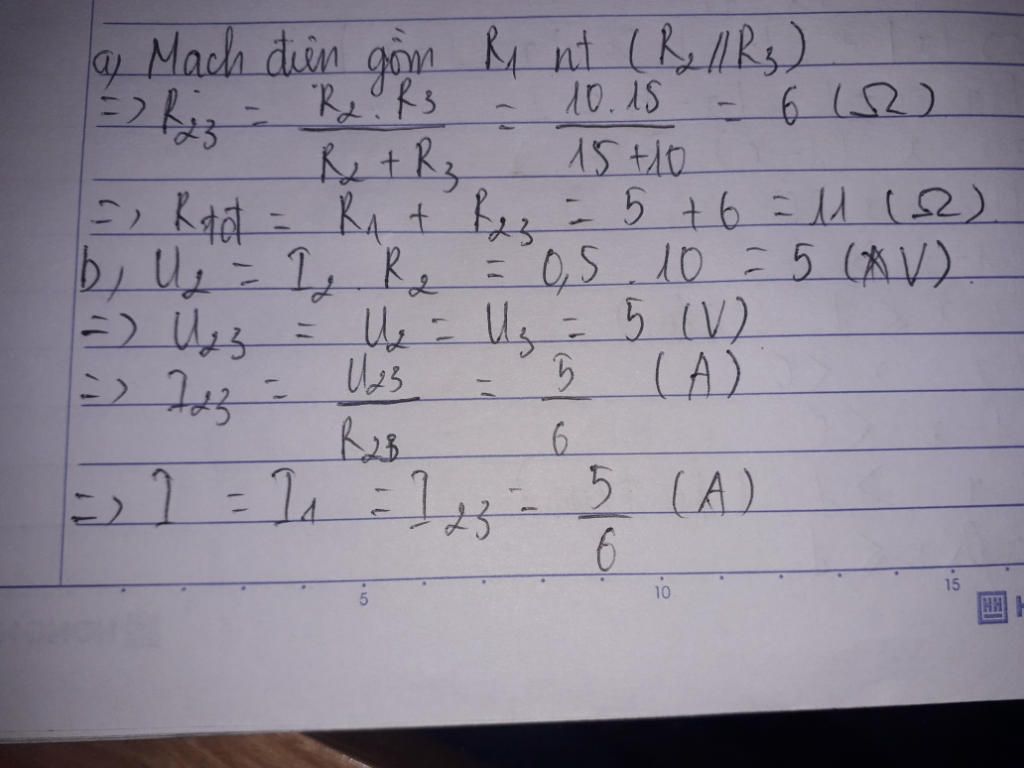 a) Mạch điện gồm R1 nt (R2//R3)
=> R23 = R2.R3 / R2+R3 = 10.15 / 15+10 = 6 (Ω)
=> Rtđ = R1 + R23 = 5 + 6 = 11 (Ω)
b) U2 = I2.R2 = 0,5.10 = 5 (V)
=> U23 = U2 = U3 = 5 (V)
=> I23 = U23 / R23 = 5 / 6 (A)
=> I = I1 = I23 = 5 / 6 (A)
5 10 15